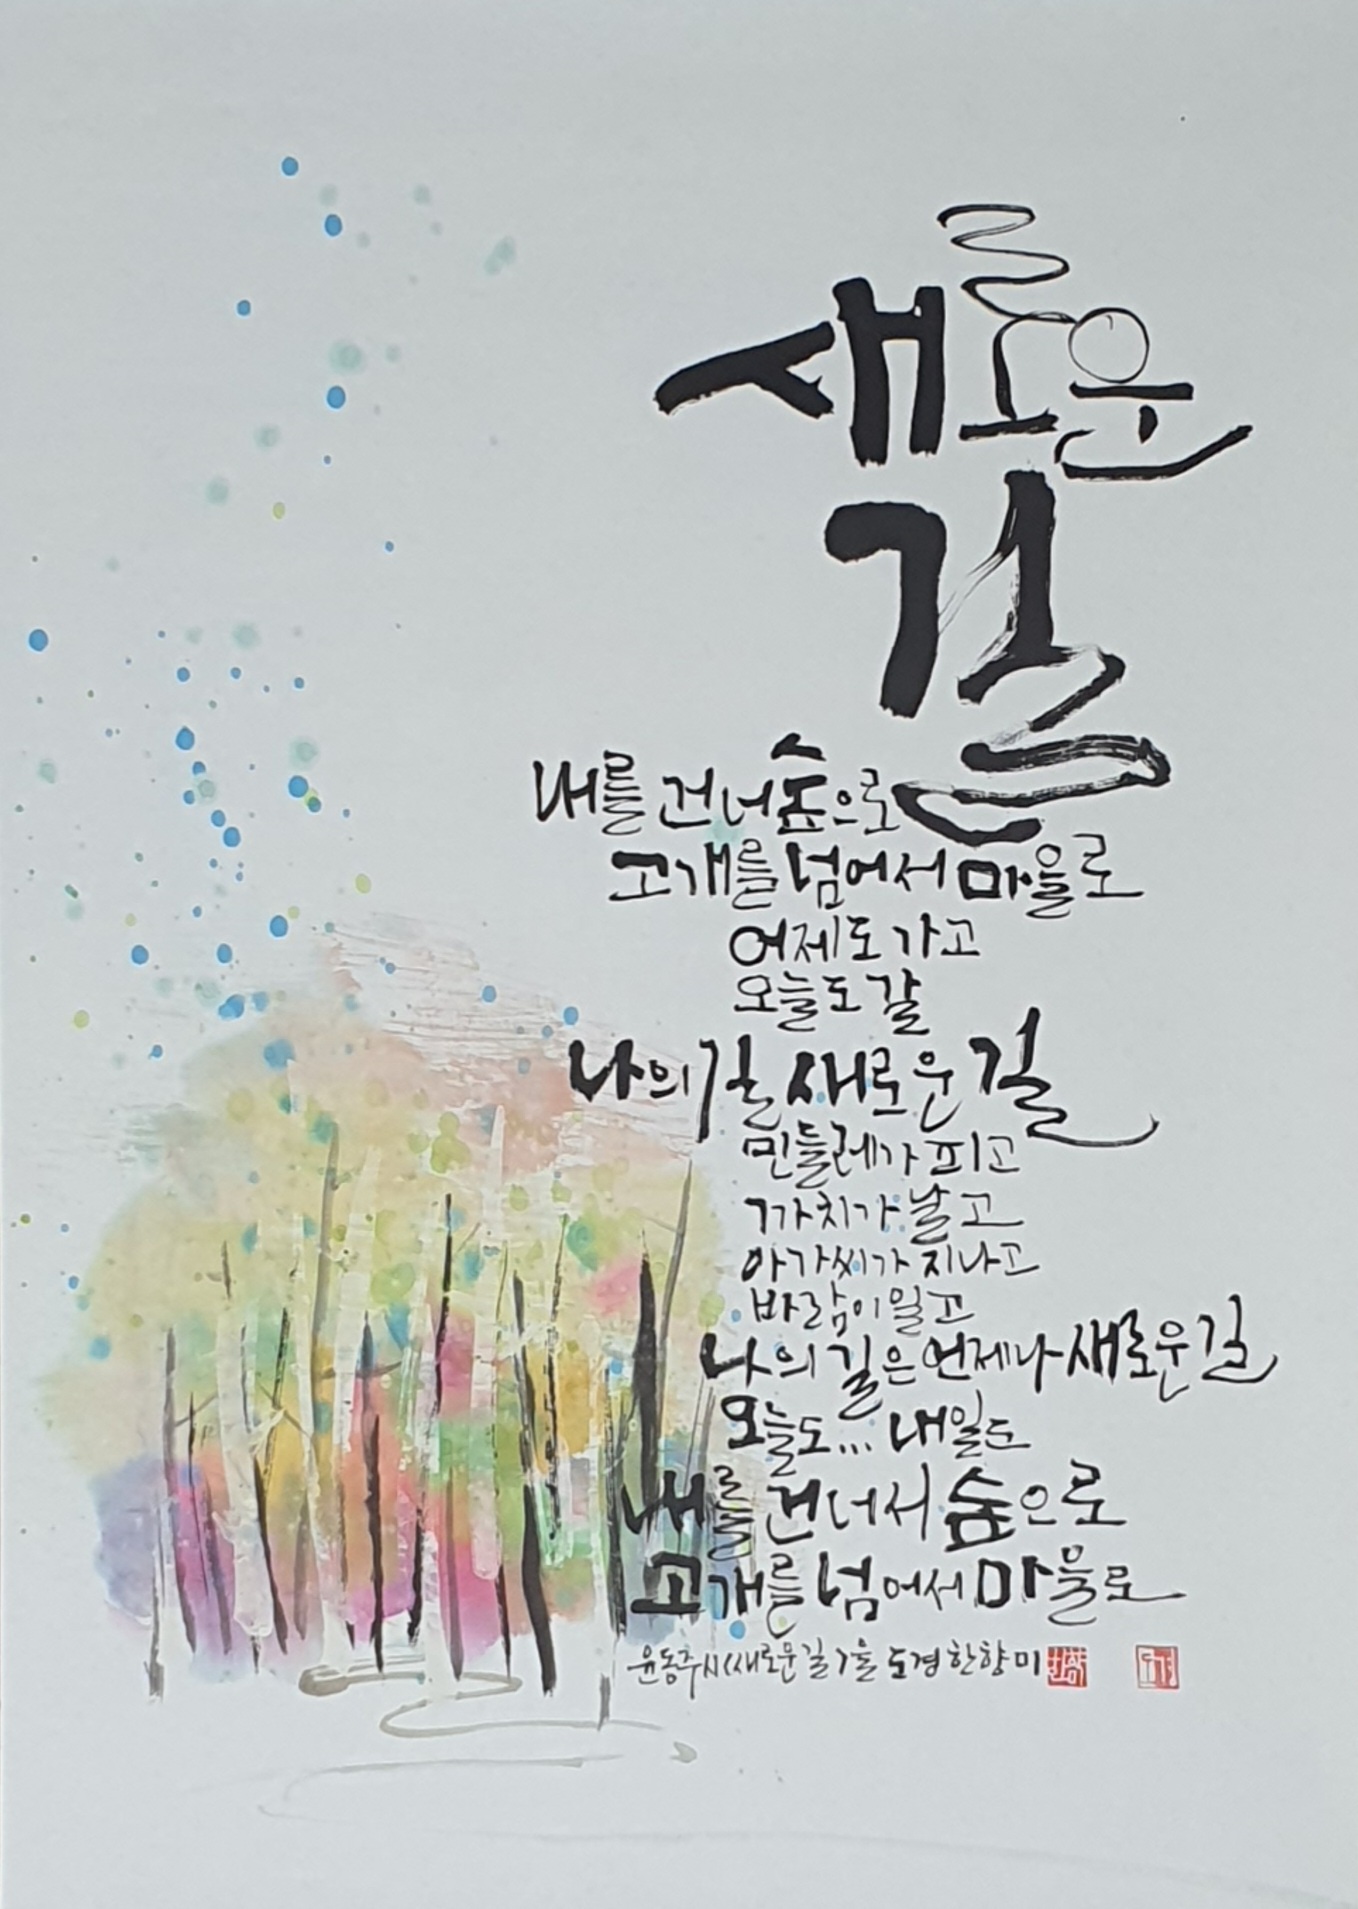 새로운
길
내를 건너 숲으로
고개를 넘어서 마을로
어제도 가고
오늘도 갈
나의 길 새로운 길
민들레가 피고
까치가 날고
아가씨가 지나고
바람이 일고
나의 길은 언제나 새로운 길
오늘도... 내일도
내를 건너서 숲으로
고개를 넘어서 마을로
윤동주 시 새로운 길 도경 한향미